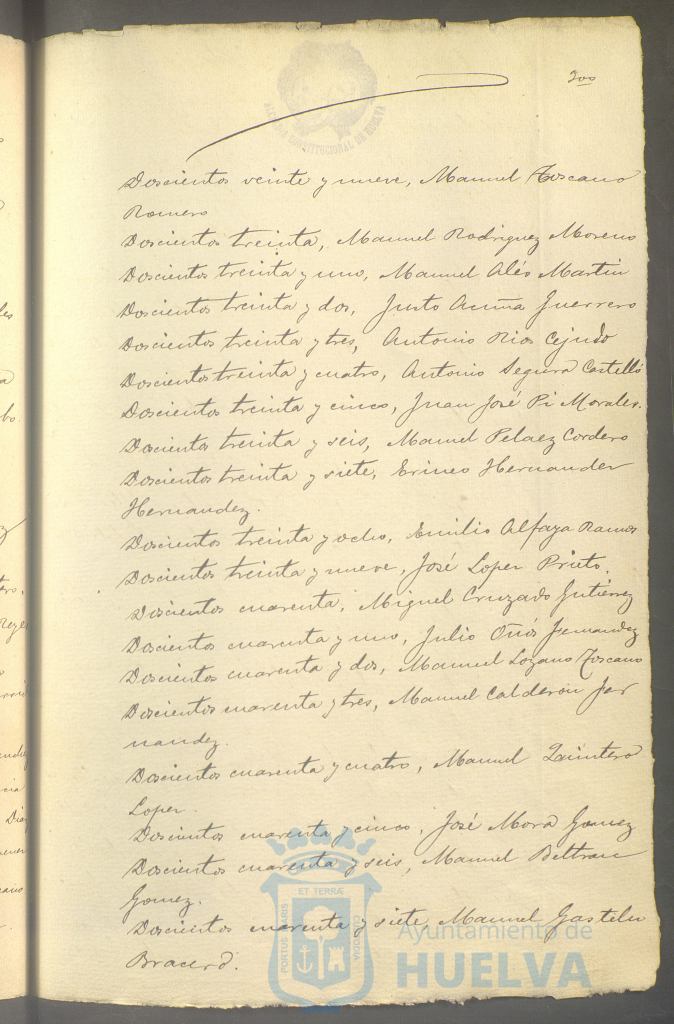 200
ALCALDIA CONSTITUCIONAL DE HUELVA
Doscientos veinte y nueve, Manuel Toscano
Romero
Doscientos treinta, Manuel Rodriguez Moreno
Doscientos treinta y uno, Manuel Alés Martin
Doscientos treinta y dos, Justo Acuña Guerrero
Doscientos treinta y tres, Antonio Rios Cejudo
Doscientos treinta y cuatro, Antonio Segura Castelló
Doscientos treinta y cinco, Juan José Pi Morales.
Doscientos treinta y seis, Manuel Pelaez Cordero
Doscientos treinta y siete, Erineo Hernandez
Hernandez.
Doscientos treinta y ocho, Emilio Alfaya Ramos
Doscientos treinta y nueve, José Lopez Prieto.
Doscientos cuarenta, Miguel Cruzado Gutiérrez
Doscientos cuarenta y uno, Julio Oñós Fernandez
Doscientos cuarenta y dos, Manuel Lozano Toscano
Doscientos cuarenta y tres, Manuel Calderon Fer
nandez.
Doscientos cuarenta y cuatro, Manuel Quintero
Lopez.
Doscientos cuarenta y cinco, José Mora Gomez
Doscientos cuarenta y seis, Manuel Beltran
Gomez.
Doscientos cuarenta y siete, Manuel Gastelu
Bracero.
ET TERRÆ
PORTUS MARIS
CUSTODIA
Ayuntamiento de
HUELVA